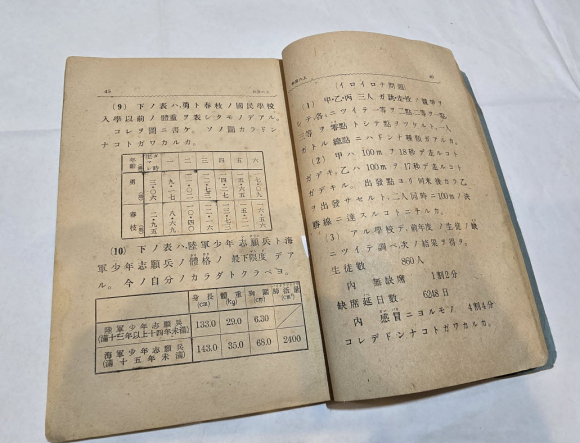 45
(9) 下ノ表ハ,勇ト春枝ノ國民學校
入學以前ノ體重ヲ表シタモノデアル。
コレヲ圖ニ書ケ。ソノ圖カラドン
ナコトガワカルカ。
年齢 一 二 三 四 五 六
勇
春枝
(10) 下ノ表ハ,陸軍少年志願兵ト海
軍少年志願兵ノ體格ノ最下限度デア
ル。今ノ自分ノカラダトクラベヨ。
身長(cm) 體重(Kg) 胸圍(cm) 肺活量(cm³)
陸軍少年志願兵(滿十三年以上十四年未滿) 133.0 29.0 6.30
海軍少年志願兵(滿十五年未滿) 143.0 35.0 68.0 2400
(イロイロナ問題)
(1) 甲・乙・丙 三人ガ
ニツイテ一等ヲ二點,二等ヲ一點,
三等ヲ零點トシテ點ヲツケルト,一人
ガトル總點ニハドンナ種類ガアルカ。
(2) 甲ハ 100mヲ18秒デ走ルコト
ガデキ,乙ハ 100mヲ17秒デ走ルコト
ガデキル。出發點ヨリ何米後カラ乙
ヲ出發サセルト,二人同時ニ100mノ決
勝線ニ達スルコトニナルカ。
(3) アル學校デ,前年度ノ生徒ノ缺席
ニツイテ調べ,次ノ結果ヲ得タ。
生徒數 860人
内 無缺席 1割2分
缺席延日數 6248日
内 感冒ニヨルモノ 4割4分
コレデドンナコトガワカルカ。